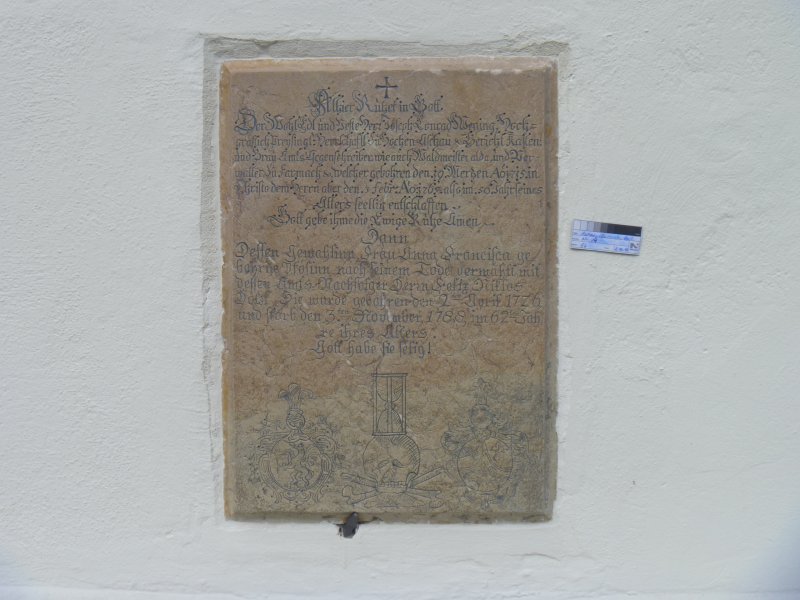 Allhier Ruhet in Gott
Der WohlEdl und Veste Herr Joseph Conrad Wening, Hoch-
gräfflich Preysingl: Herrschafft zu Hochen Aschau Gericht
und Gegenschreiber, wie auch Waldmeister alda, und Ver-
walter zu welcher gebohren den 19 Merzen Ao 1715 in
Christo dem Herrn aber den 5 Febr: Ao also im 50 Jahr seines
Alters seelig entschlaffen
Gott gebe ihme die Ewige Ruhe Amen
Dann
Dessen Gemahlinn Frau Anna Francisca ge-
bohrne nach seinem Tode vermählt mit
dessen Amts Nachfolger Herrn Felix
Sie wurde gebohren den 2ten April 1726
und starb den 3ten November 1788 im 62ten Jah-
re ihres Alters.
Gott habe sie selig!